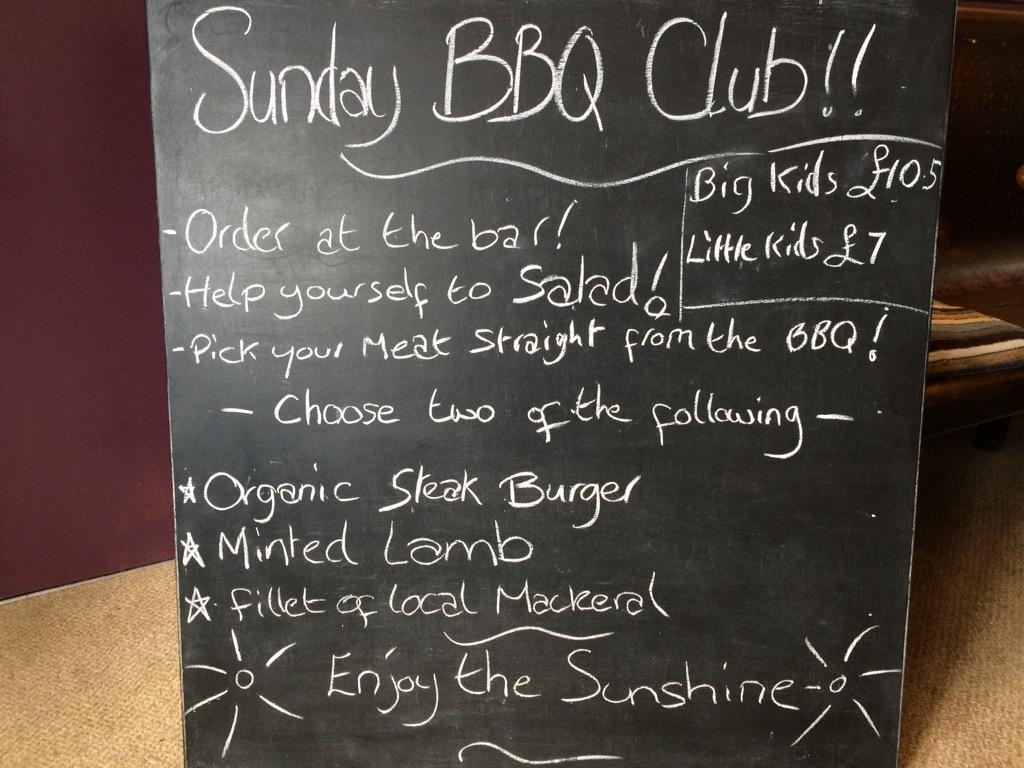 Sunday BBQ Club!!
Big Kids £10.5
Little Kids £7
- Order at the bar!
- Help yourself to Salad!
- Pick your Meat Straight from the BBQ!
- Choose two of the following -
☆ Organic Steak Burger
☆ Minted Lamb
☆ fillet of local Mackeral
Enjoy the Sunshine